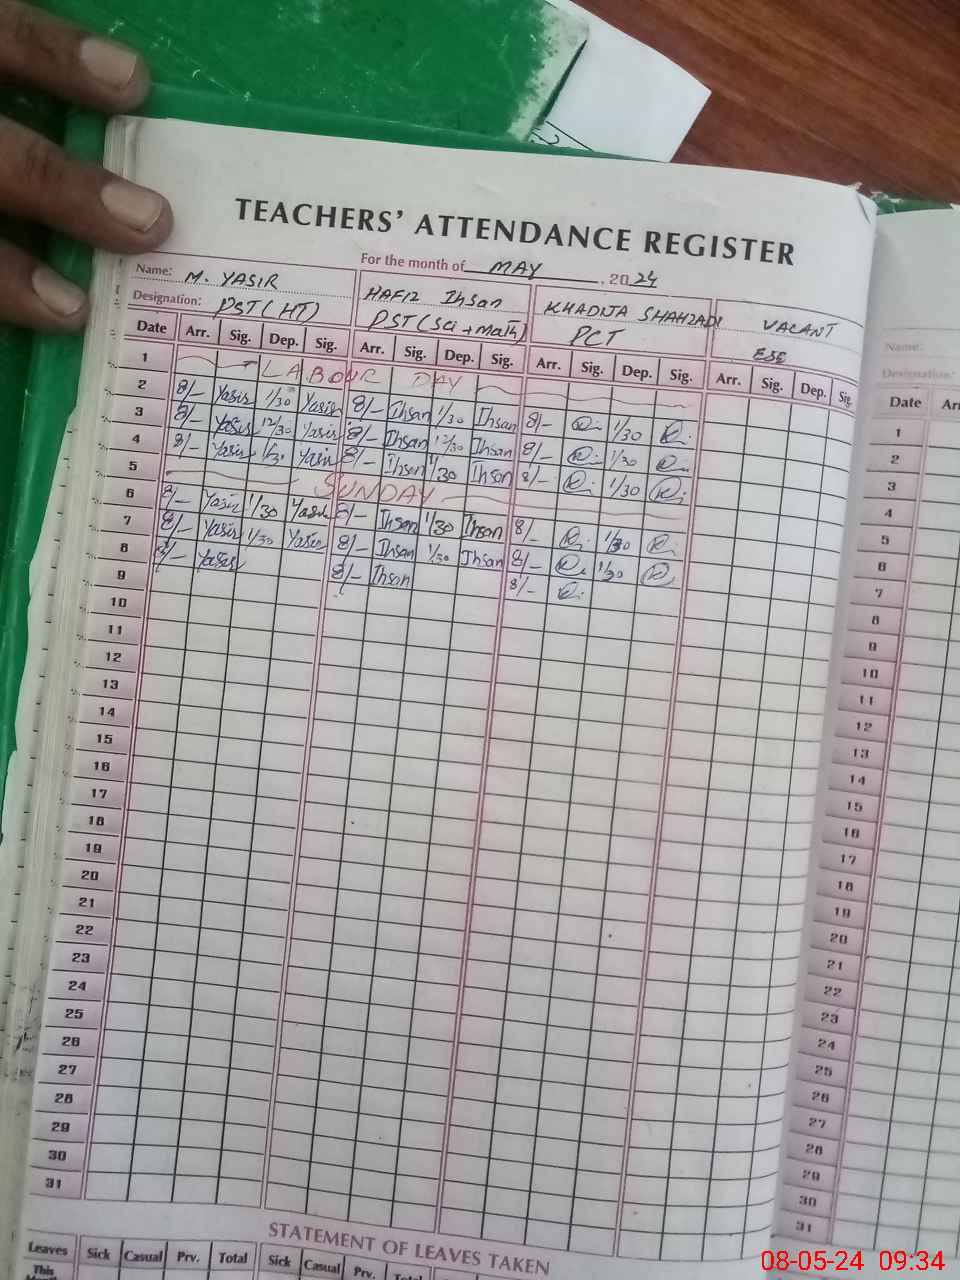 TEACHERS' ATTENDANCE REGISTER
For the month of MAY, 2024
Name: M. YASIR HAFIZ Ihsan KHADIJA SHAHZADI VACANT
Designation: PST (HT) PST (Sci + Math) PCT ESE
Date Arr. Sig. Dep. Sig. Arr. Sig. Dep. Sig. Arr. Sig. Dep. Sig. Arr. Sig. Dep. Sig.
1 LABOUR DAY
2 8/- Yasir 1/30 Yasir 8/- Ihsan 1/30 Ihsan 8/- 1/30
3 8/- Yasir 12/30 Yasir 8/- Ihsan 12/30 Ihsan 8/- 1/30
4 8/- Yasir Yasir 8/- Ihsan 1/30 Ihsan 8/- 1/30
5 SUNDAY
6 8/- Yasir 1/30 Yasir 8/- Ihsan 1/30 Ihsan 8/- 1/30
7 8/- Yasir 1/30 Yasir 8/- Ihsan 1/30 Ihsan 8/- 1/30
8 8/- Yasir 8/- Ihsan 8/-
9
10
11
12
13
14
15
16
17
18
19
20
21
22
23
24
25
26
27
28
29
30
31
STATEMENT OF LEAVES TAKEN
Leaves Sick Casual Prv. Total Sick Casual Prv. Total
This
Name:
Designation:
Date Arr
1
2
3
4
5
6
7
8
9
10
11
12
13
14
15
16
17
18
19
20
21
22
23
24
25
26
27
28
29
30
31
08-05-24 09:34